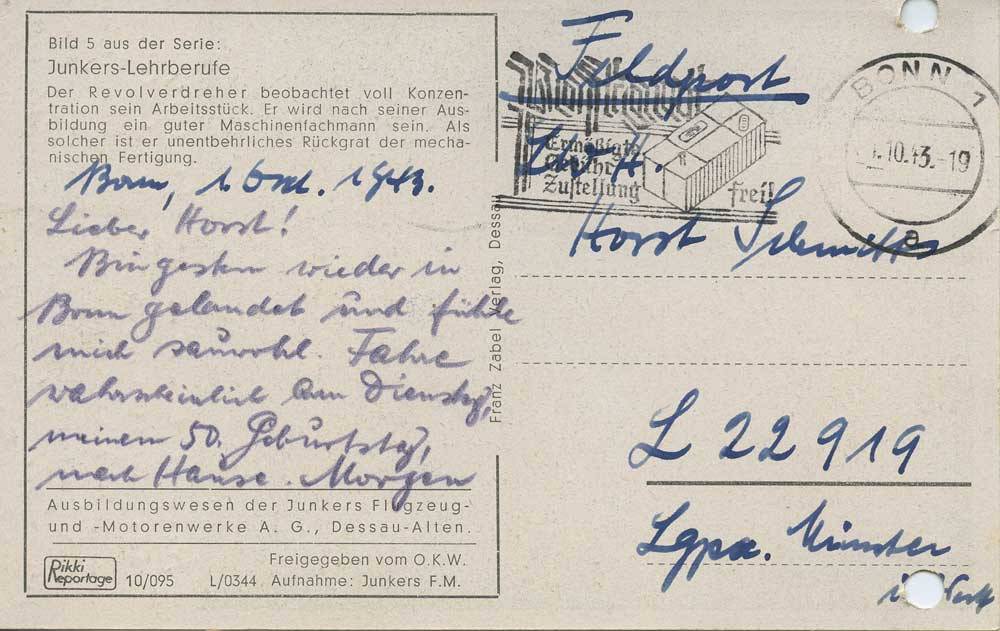 Bild 5 aus der Serie:
Junkers-Lehrberufe
Der Revolverdreher beobachtet voll Konzen-
tration sein Arbeitsstück. Er wird nach seiner Aus-
bildung ein guter Maschinenfachmann sein. Als
solcher ist er unentbehrliches Rückgrat der mecha-
nischen Fertigung.
Bonn, 1. Okt. 1943.
Lieber Horst!
Bin gestern wieder in
Bonn gelandet und fühle
mich sauwohl. Fahre
wahrscheinlich am Dienstag,
meinem 50. Geburtstag,
nach Hause. Morgen
Ausbildungswesen der Junkers Flugzeug-
und -Motorenwerke A. G., Dessau-Alten.
Freigegeben vom O.K.W.
Rikki Reportage 10/095 L/0344 Aufnahme: Junkers F.M.
Franz Zabel Verlag, Dessau
Feldpost
Ermäßigte
Gebühr
Zustellung frei!
BONN 1
.10.43.-19
a
Horst
L 22919
Lgpa. Münster
i. Westf